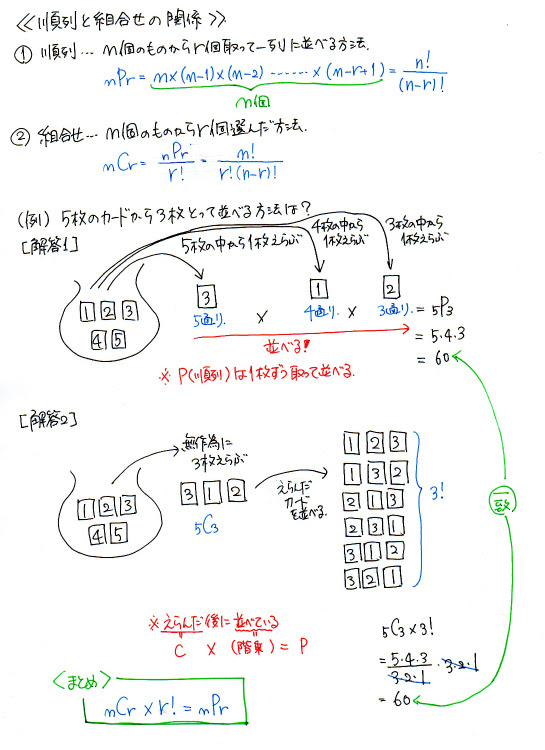 ≪順列と組合せの関係≫
① 順列… n個のものからr個取って一列に並べる方法.
nPr = n×(n-1)×(n-2) ……× (n-r+1) = n!/(n-r)!
n個
② 組合せ… n個のものからr個選んだ方法.
nCr = nPr/r! = n!/r!(n-r)!
(例) 5枚のカードから3枚とって並べる方法は?
[解答1]
5枚の中から1枚えらぶ
4枚の中から1枚えらぶ
3枚の中から1枚えらぶ
1 2 3
4 5
3 1 2
5通り. × 4通り. × 3通り. = 5P3
並べる! = 5・4・3
= 60
※ P(順列)は1枚ずつ取って並べる.
[解答2]
無作為に
3枚えらぶ
1 2 3
4 5
3 1 2
5C3
えらんだ
カードを
並べる.
1 2 3
1 3 2
2 1 3
2 3 1
3 1 2
3 2 1
3!
一致
※えらんだ後に並べている
C × (階乗) = P
5C3 × 3!
= 5・4・3/3・2・1 ・ 3・2・1
= 60
<まとめ>
nCr × r! = nPr